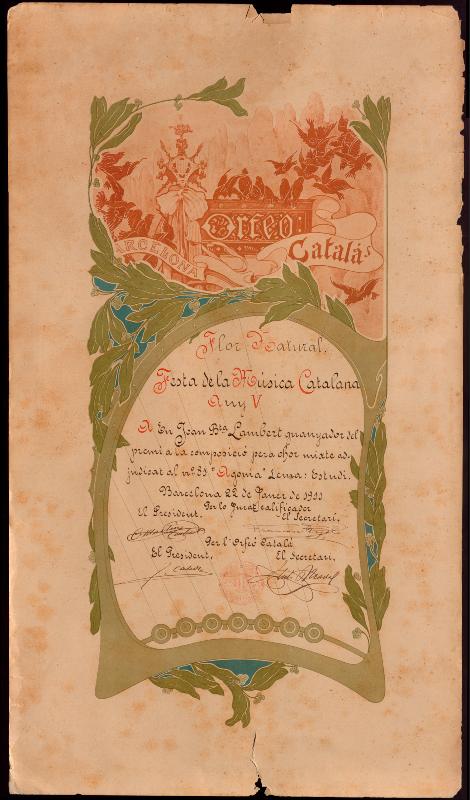 Orfeó
Català
BARCELONA
Flor Natural.
Festa de la Música Catalana
Any V
A En Joan Bta Lambert guanyador del
premi a la composició pera chor mixte ad-
judicat al nº 81 "Agonia" Lema: Estudi.
Barcelona 22 de Janer de 1911
Per lo Jurat calificador
El President. El Secretari,
Per l'Orfeó Català
El President, El Secretari,